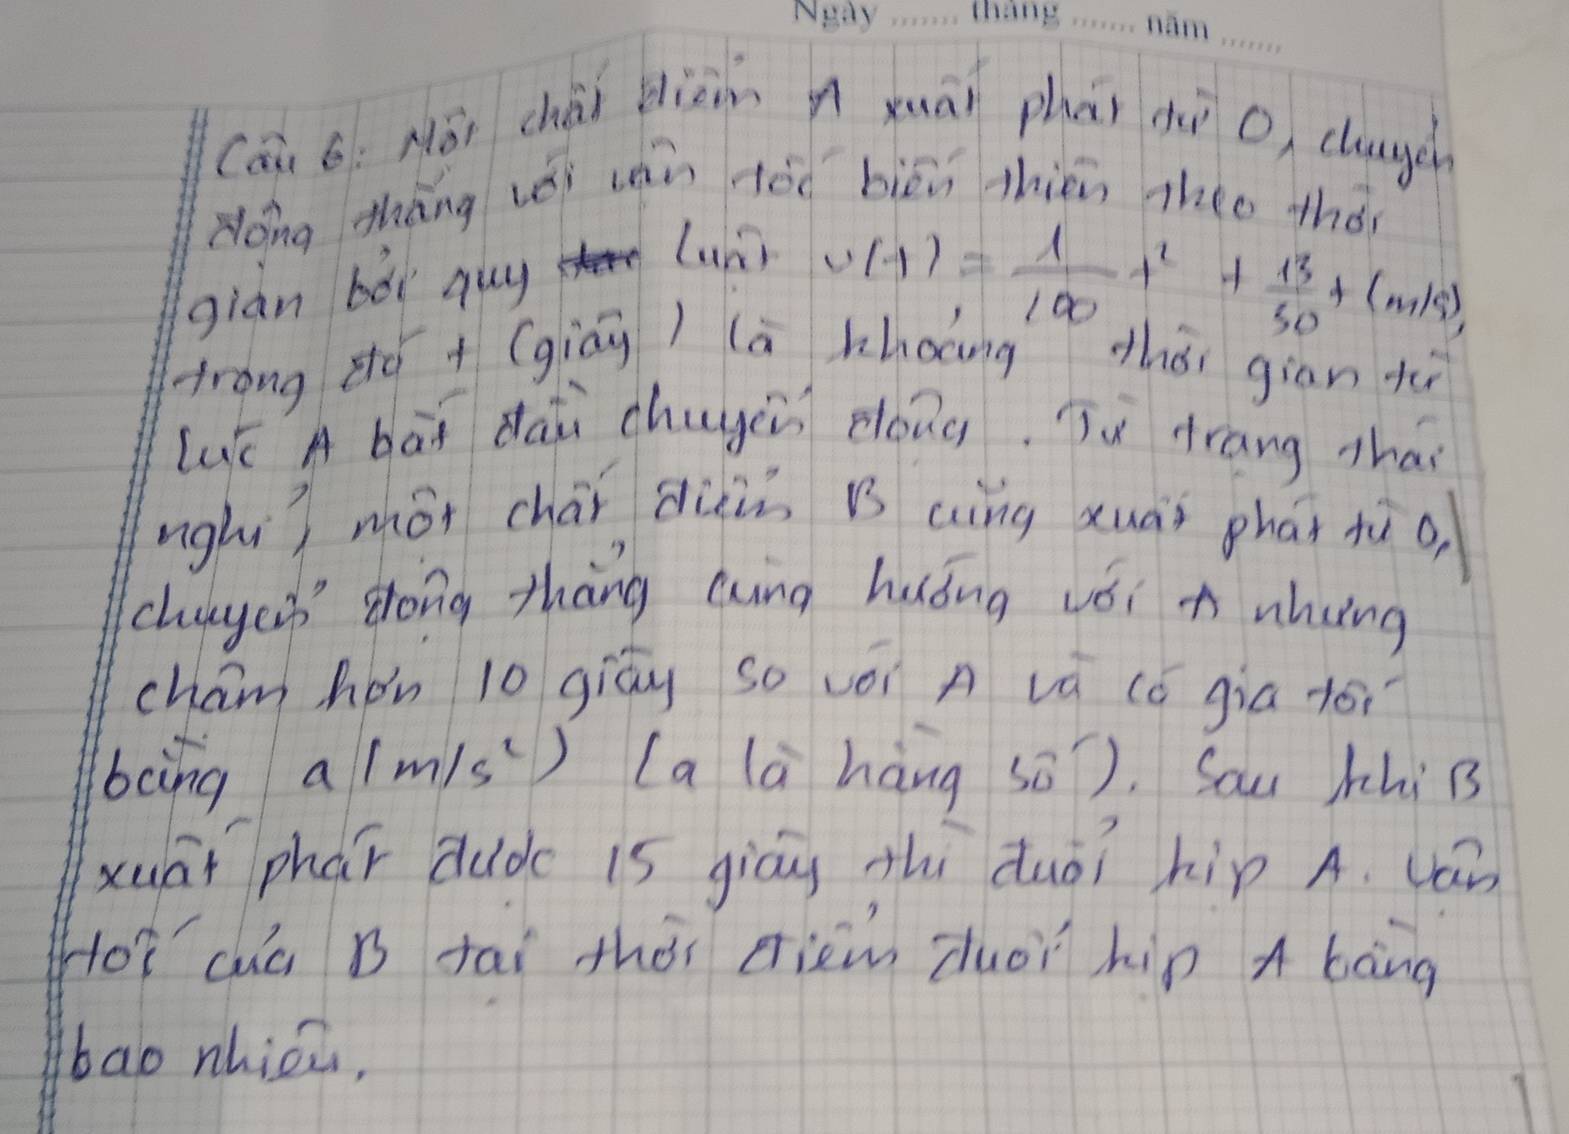 Ngày ....... tháng ....... năm .......
Câu 6: Một chất điểm A xuất phát từ O, chuyển
động thẳng với vận tốc biến thiên theo thời
gian bởi quy luật v(t) = \frac{1}{100}t² + \frac{13}{30}t (m/s),
trong đó t (giây) là khoảng thời gian từ
lúc A bắt đầu chuyển động. Từ trạng thái
nghỉ, một chất điểm B cũng xuất phát từ O,
chuyển động thẳng cùng hướng với A nhưng
chậm hơn 10 giây so với A và có gia tốc
bằng a (m/s²) (a là hằng số). Sau khi B
xuất phát được 15 giây thì đuổi kịp A. Vận
tốc của B tại thời điểm đuổi kịp A bằng
bao nhiêu.